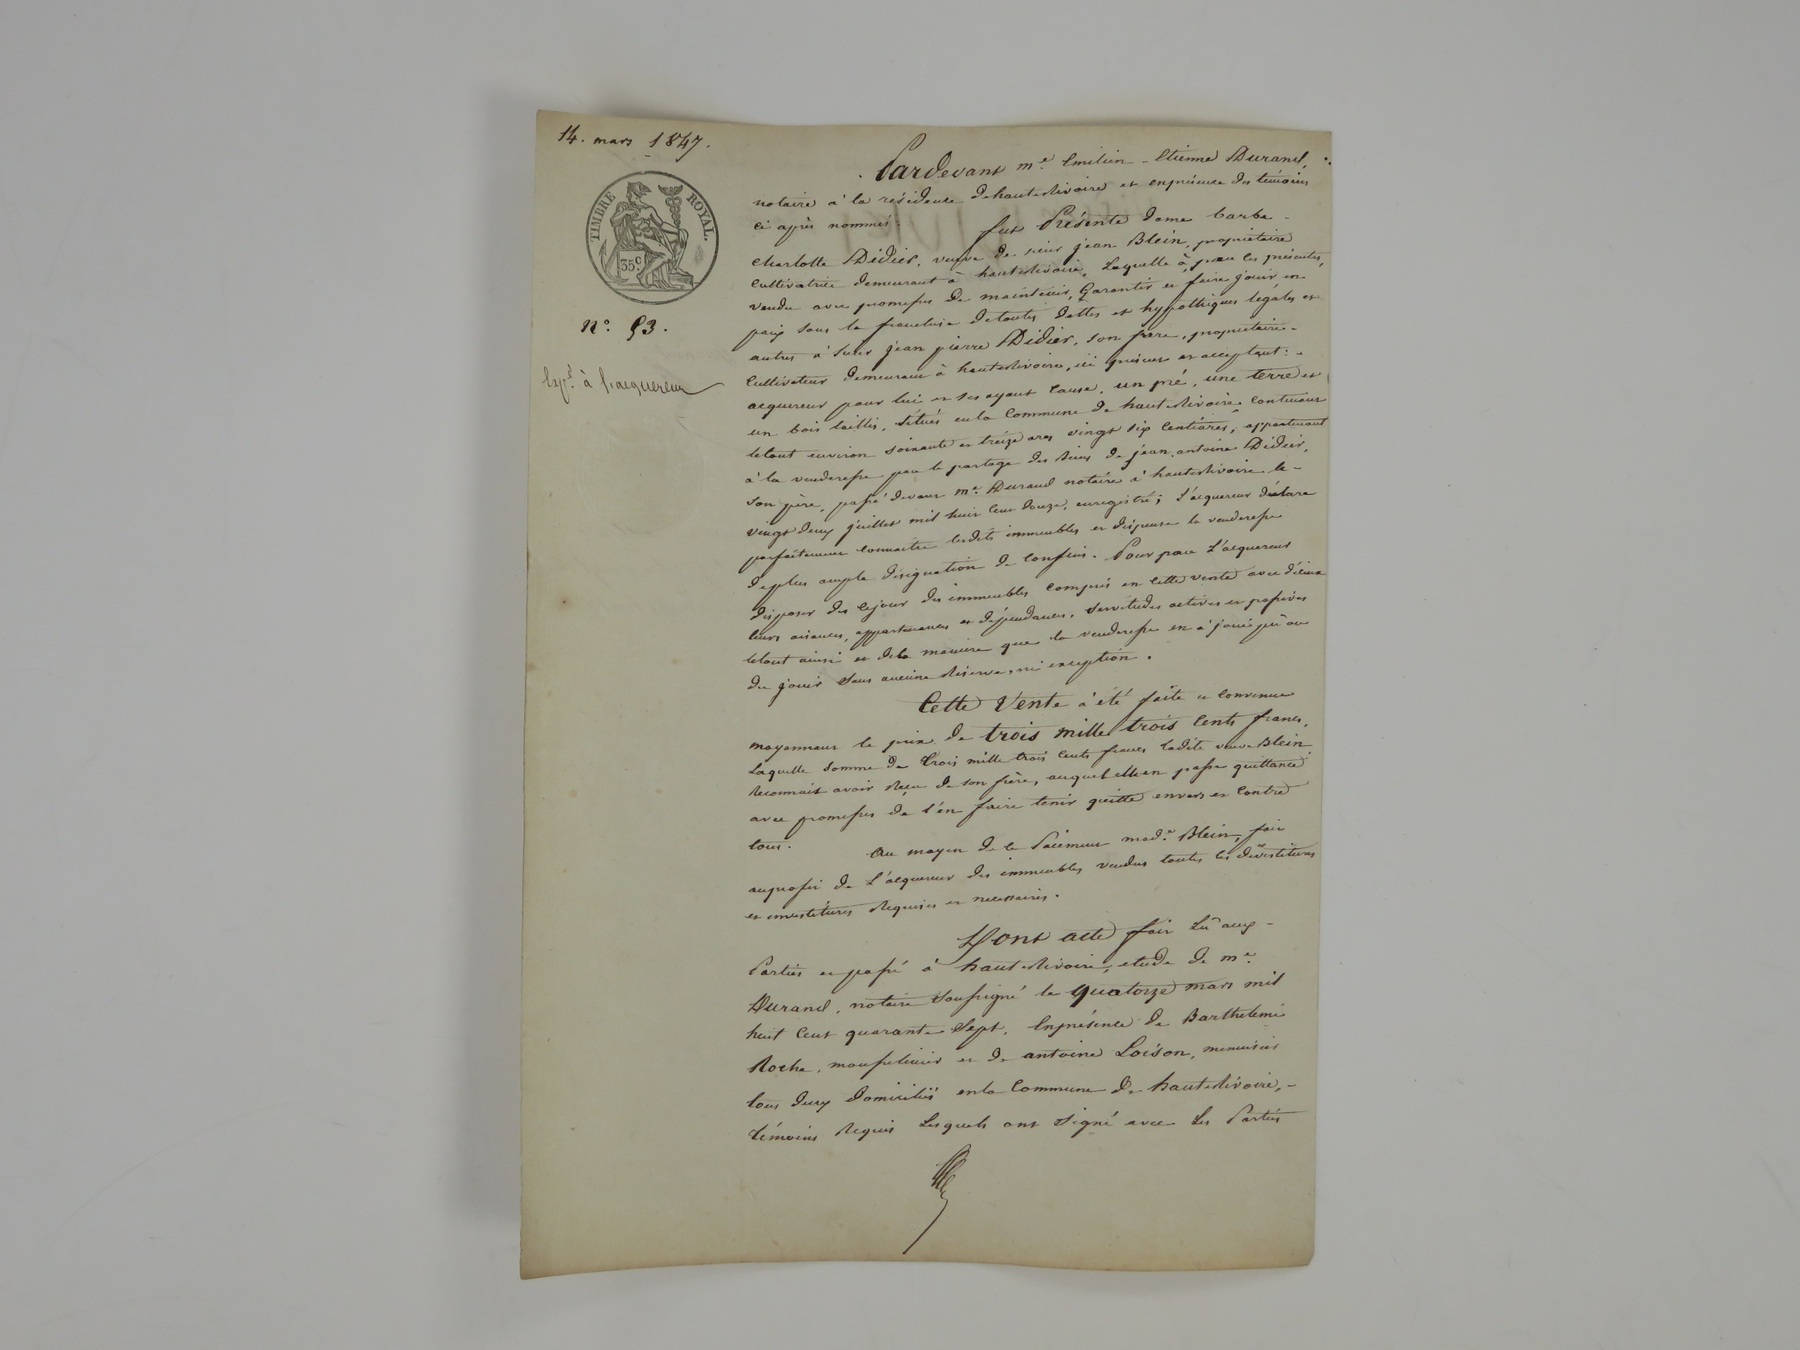 14. mars 1847.
TIMBRE ROYAL.
35c.
N.° 53.
Exp.n à l'acquereur
Pardevant m.e Emilien - Etienne Durand,
notaire à la résidence de haut-Rivoire et enprésence des témoins
ci après nommés:
fut Présente dame barbe -
Charlotte Didier, veuve de sieur jean Blein, propriétaire
Cultivatrice demeurant à hautRivoire, Laquelle à, par les présentes,
vendu avec promesses de maintenir, Garantir et faire jouir en
paix sous la franchise detoutes dettes et hypothèques légales et
autres à Sieur jean pierre Didier, son frère, propriétaire -
Cultivateur demeurant à hautRivoire, ici présent et acceptant: -
acquereur pour lui et ses ayant Cause, un pré, une terre et
un bois taillis, Situés enla Commune de hautRivoire, Contenant
letout environ soixante et treize ares vingt six Centiares, appartenant
à la venderesse par le partage des Biens de jean antoine Didier,
son père, passé devant m.e Durand notaire à hautRivoire le -
vingt deux juillet mil huit Cent douze, enregistré; L'acquereur déclare
parfaitement Connaître lesdits immeubles et dispense la venderesse
deplus ample désignation de Confins. Pour par L'acquereur
disposer dès Cejour des immeubles Compris en Cette vente avec
leurs aisances, appartenances et dépendances, Servitudes actives et passives
letout ainsi et dela manière que la venderesse en à joui pu ou
du jouir Sans aucune Réserve, ni exception.
Cette Vente à été faite et Convenue
moyennant le prix de trois mille trois Cents francs,
Laquelle Somme de trois mille trois Cents francs ladite veuve Blein
Reconnait avoir Reçu de son frère, auquel elle en passe quittance
avec promesses de l'en faire tenir quitte envers et Contre
tous.
Au moyen de Ce Paiement mad.e Blein, fait
auprofit de L'acquereur des immeubles vendus toutes les dévestitures
et investitures Requises et nécessaires.
Dont acte fait Lû aux -
Parties et passé à haut-Rivoire, etude de m.e
Durand, notaire Soussigné le quatorze mars mil
huit Cent quarante Sept, Enprésence de Barthelemi
Roche, mousselinier et de antoine Loison, menuisier
tous deux domiciliés enla Commune de hautRivoire, -
témoins Requis Lesquels ont Signé avec Les Parties